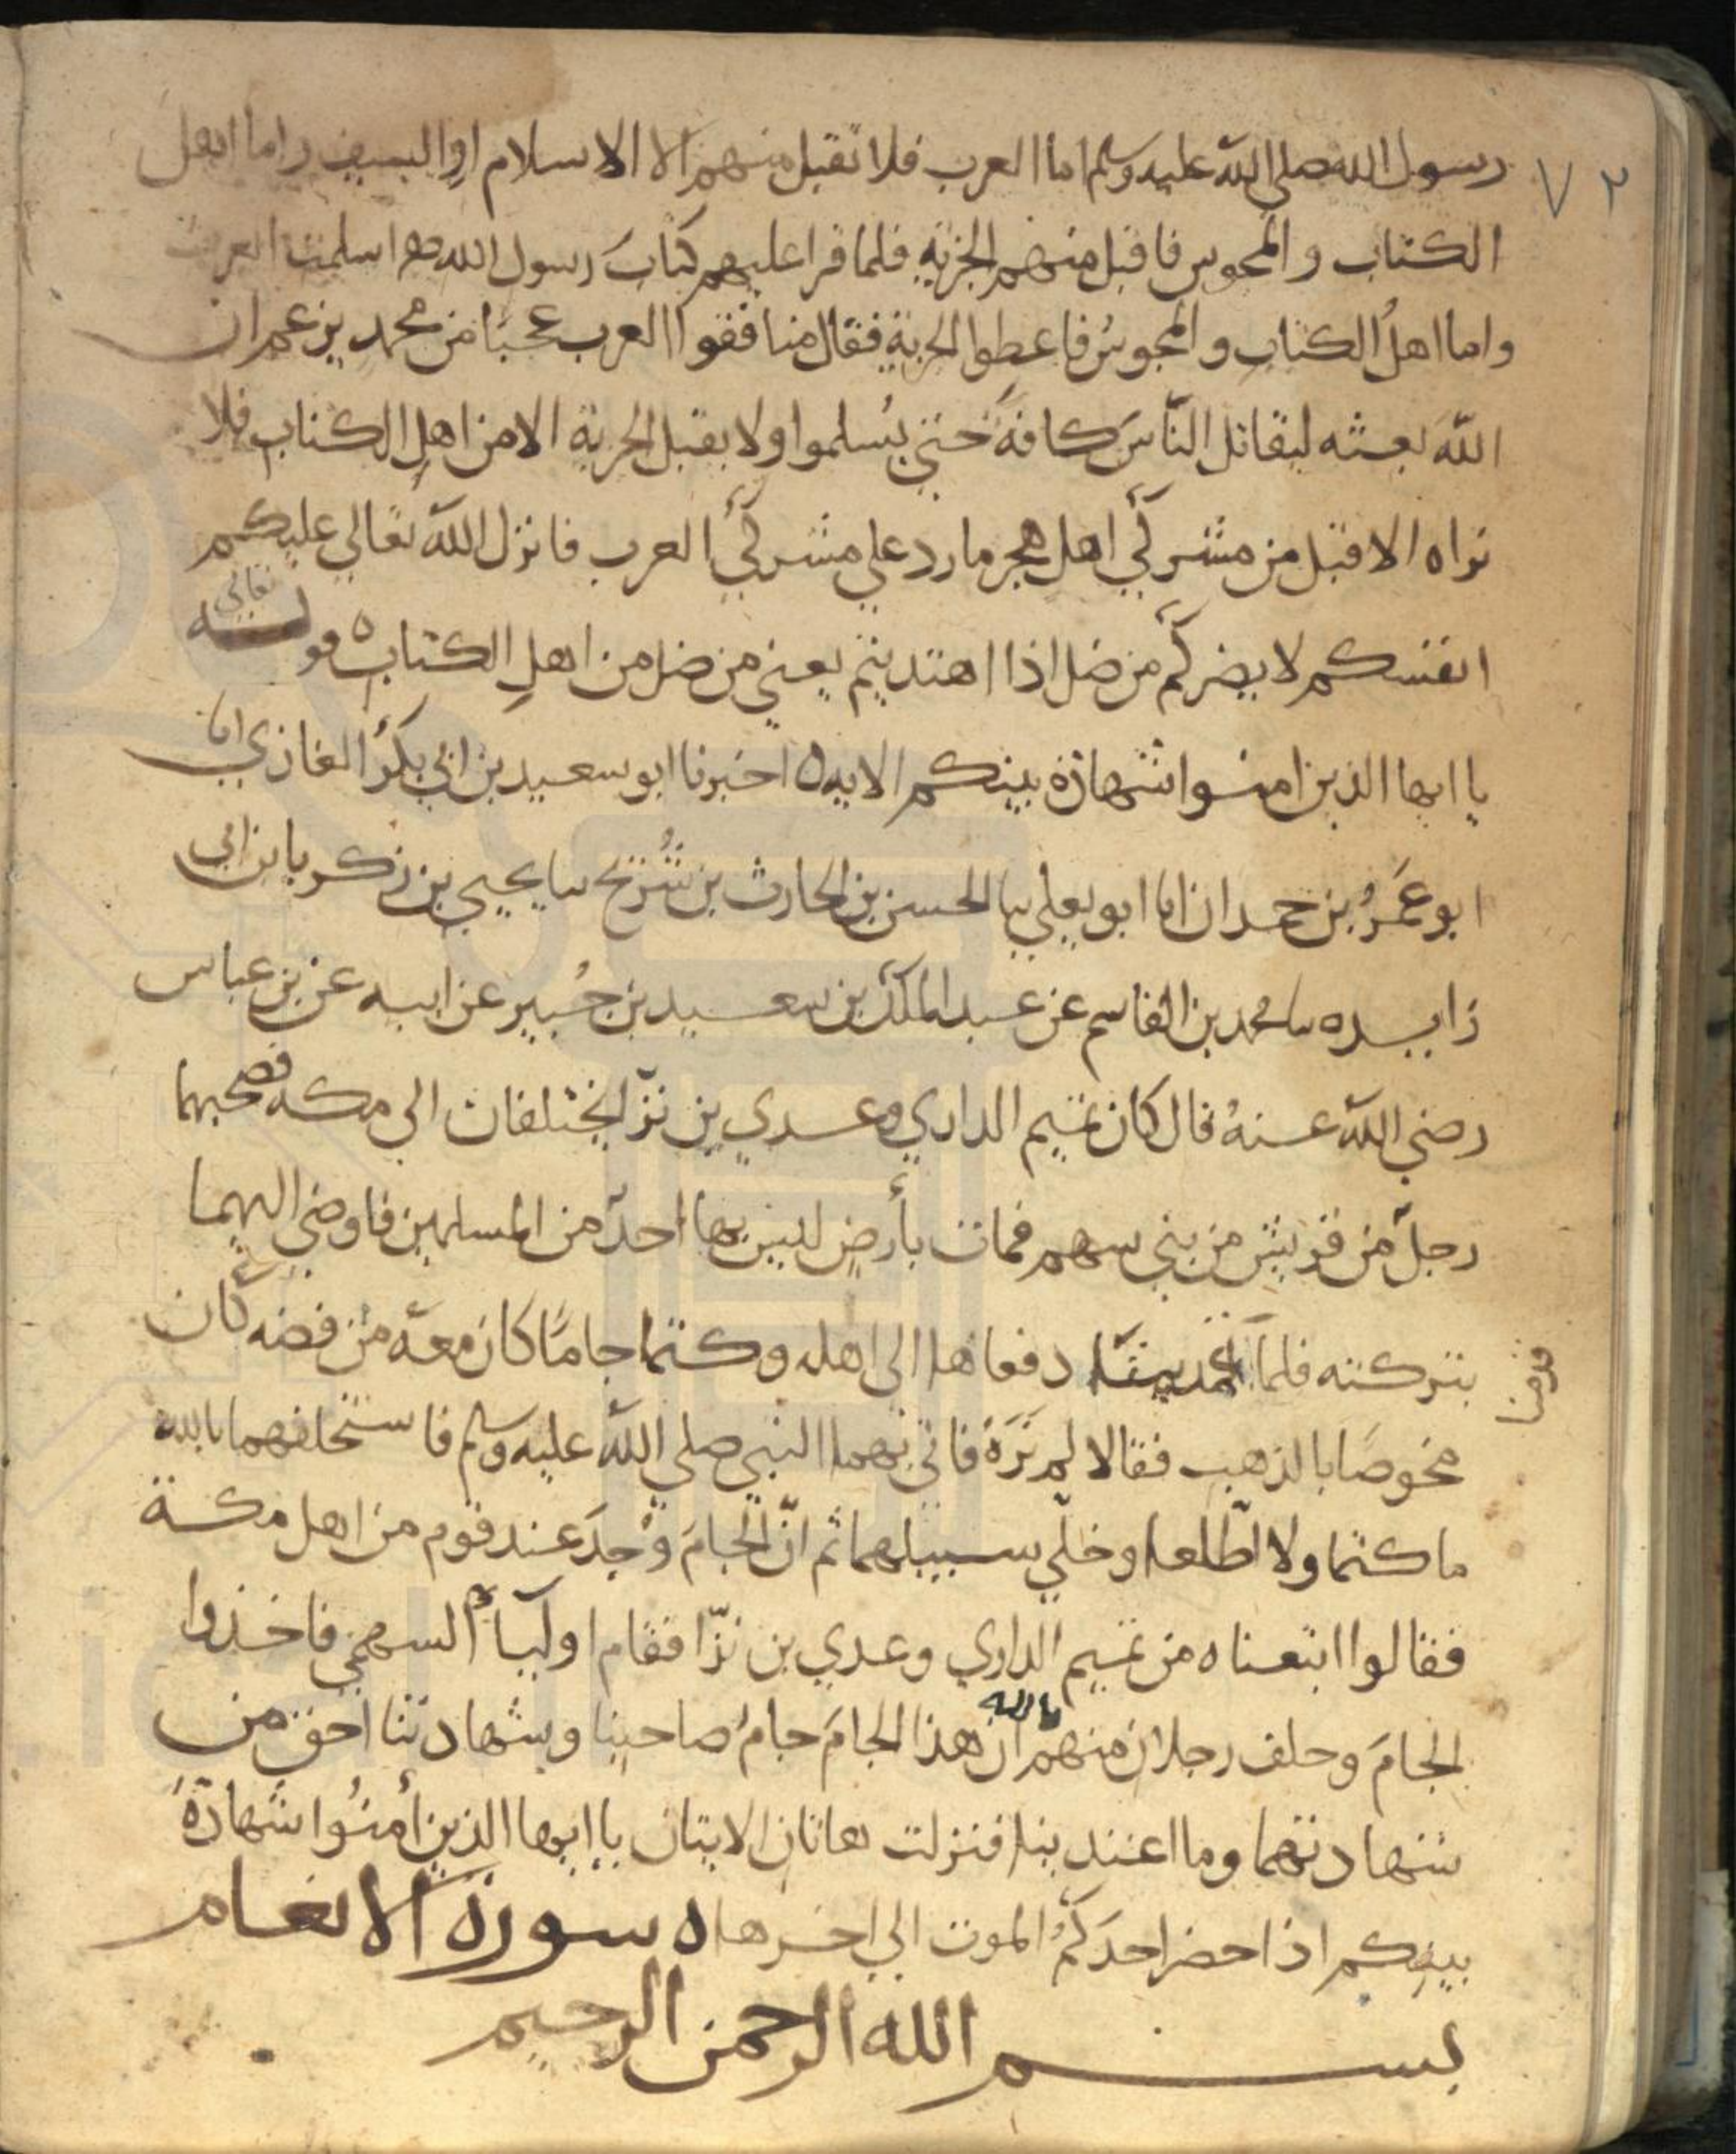 ٧٢
رسول الله صلى الله عليه وسلم اما العرب فلا تقبل منهم الا الاسلام او السيف واما اهل
الكتاب والمجوس فاقبل منهم الجزية فلما قرا عليهم كتاب رسول الله صم اسلمت العرب
واما اهلُ الكتاب والمجوسُ فاعطوا الجزية فقال منافقوا العرب عجبًا من محمد يزعم ان
اللّه بعثه ليقاتل النّاسَ كافةً حتى يُسلموا ولا يقبل الجزية الا من اهلِ الكتاب فلا
نراه الا قبل من مشركي اهل هجر ما رد على مشركي العرب فانزل اللّه تعالى عليكم
انفسكم لا يضركم من ضل اذا اهتديتم يعني من ضل من اهلِ الكتاب ٥ قوله تعالى
يا ايها الذين امنوا شهادة بينكم الايه ٥ اخبرنا ابو سعيد بن ابي بكر الغازي انا
ابو عَمرُ بن حمدان انا ابو يعلي نا الحسن بن الحارث بن شُريح نا يحيى بن زكريا بن ابي
زايده نا محمد بن القاسم عن عبد الملك بن سعيد بن جُبير عن ابيه عن بن عباس
رضي اللّه عنهُ قال كان تميم الداري وعدي بن نزّا يختلفان الى مكه فصحبهما
رجلٌ من قريش من بني سهم فمات بأرضٍ ليس بها احدٌ من المسلمين فاوصى اليهما
بتركته فلما دفعاها الى اهله وكتما جامًا كان معه من فضه كان
قدمنا
مخوصًا بالذهب فقالا لم نَرَهُ فاتي بهما النبي صلى اللّه عليه وسلم فاستحلفهما بالله
ما كتما ولا اطّلعا وخلّي سبيلهما ثم انّ الجامَ وُجدَ عند قوم من اهل مكة
فقالوا ابتعناه من تميم الداري وعدي بن نزّا فقام اوليأ السهمي فاخذوا
الجامَ وحلف رجلان منهم بالله ان هذا الجامَ جامُ صاحبنا وشهادتنا احق من
شهادتهما وما اعتدينا فنزلت هاتان الايتان يا ايها الذين أمنُوا شهادةُ
بينكم اذا حضر احدكمُ الموت الي اخرها ٥ سورة الانعام
بسم الله الرحمن الرحيم